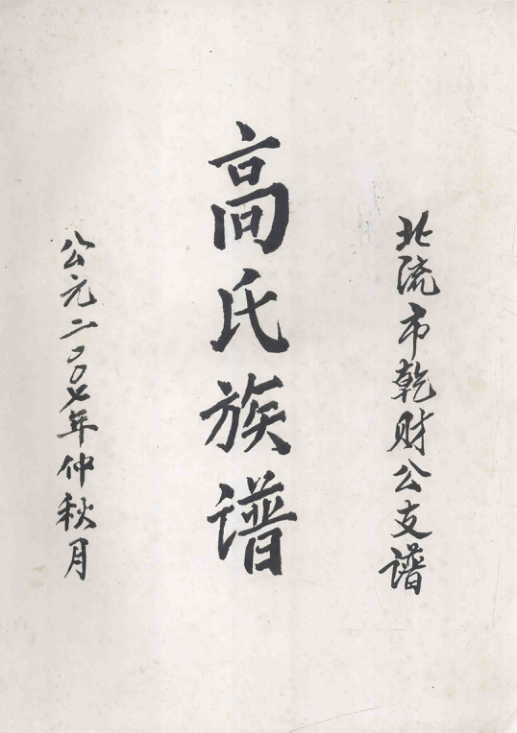 北流市乾财公支谱
高氏族谱
公元二〇〇七年仲秋月